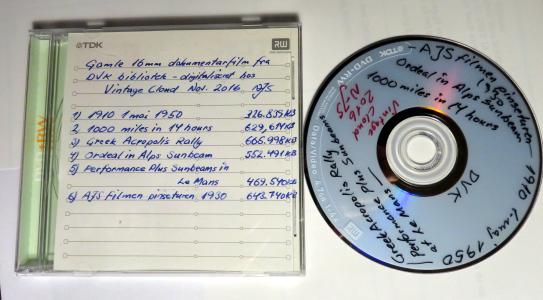 TDK
RW
Gamle 16mm dokumentarfilm fra
DVK bibliotek - digitaliseret hos
Vintage Cloud Nov. 2016. NJS
1) 1910 1 maj 1950 326.835KB
2) 1000 miles in 14 hours 629,614KB
3) Greek Acropolis Rally 605.998KB
4) Ordeal in Alps Sunbeam 552.491KB
5) Performance Plus Sunbeams in
Le Mans 469,540KB
6) AJS Filmen pinseturen 1950 643.740KB
- AJS Filmen pinseturen
1950
Ordeal in Alps Sunbeam
1000 miles in 14 hours
Vintage
Cloud
2016
NJS
DVK
- 1910 1 maj 1950
Greek Acropolis Rally
Performance Plus Sunbeams
at Le Mans
TDK
DVD-RW